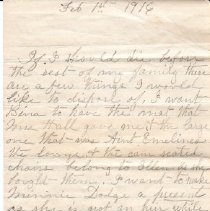 Feb 1st 1916
If I should die before
the rest of my family there
are a few things I would
like to dispose of, I want
to have the mat that
Hall gave me the large
one that was Aunt Emelines
the lounge & the cane seated
chairs belong to
bought them. I want to have
Minnie Dodge a present
as she is got